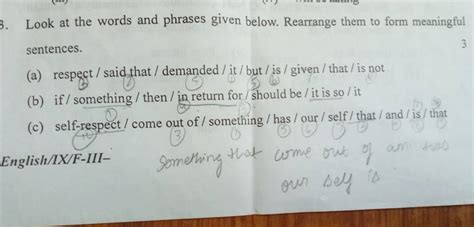 3. Look at the words and phrases given below. Rearrange them to form meaningful
sentences.
3
(a) respect / said that / demanded / it / but / is / given / that / is not
(b) if / something / then / in return for / should be / it is so / it
(c) self-respect / come out of / something / has / our / self / that / and / is / that
English/IX/F-III–
something that come out of an has
our self is